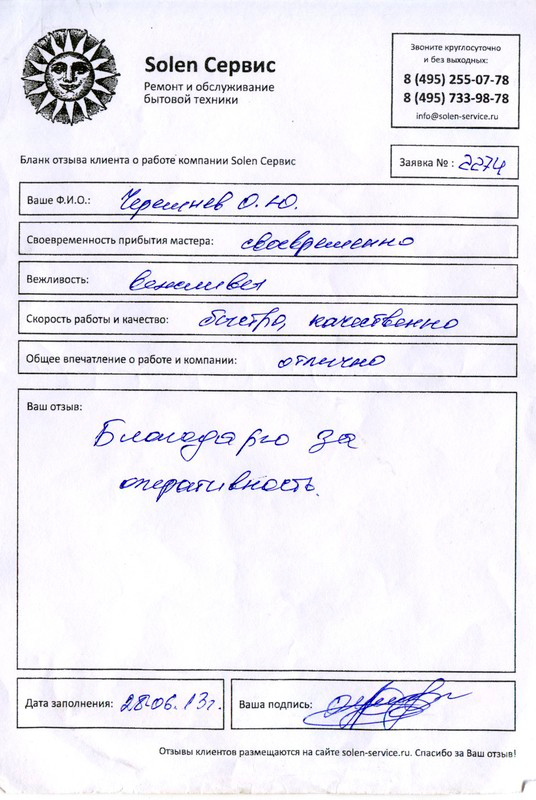 Solen Сервис
Ремонт и обслуживание
бытовой техники
Звоните круглосуточно
и без выходных:
8 (495) 255-07-78
8 (495) 733-98-78
info@solen-service.ru
Бланк отзыва клиента о работе компании Solen Сервис
Заявка № : 2274
Ваше Ф.И.О.: Черемнев О.Ю.
Своевременность прибытия мастера: своевременно
Вежливость: вежливы
Скорость работы и качество: быстро, качественно
Общее впечатление о работе и компании: отлично
Ваш отзыв:
Благодарю за
оперативность.
Дата заполнения: 28.06.13г.
Ваша подпись:
Отзывы клиентов размещаются на сайте solen-service.ru. Спасибо за Ваш отзыв!